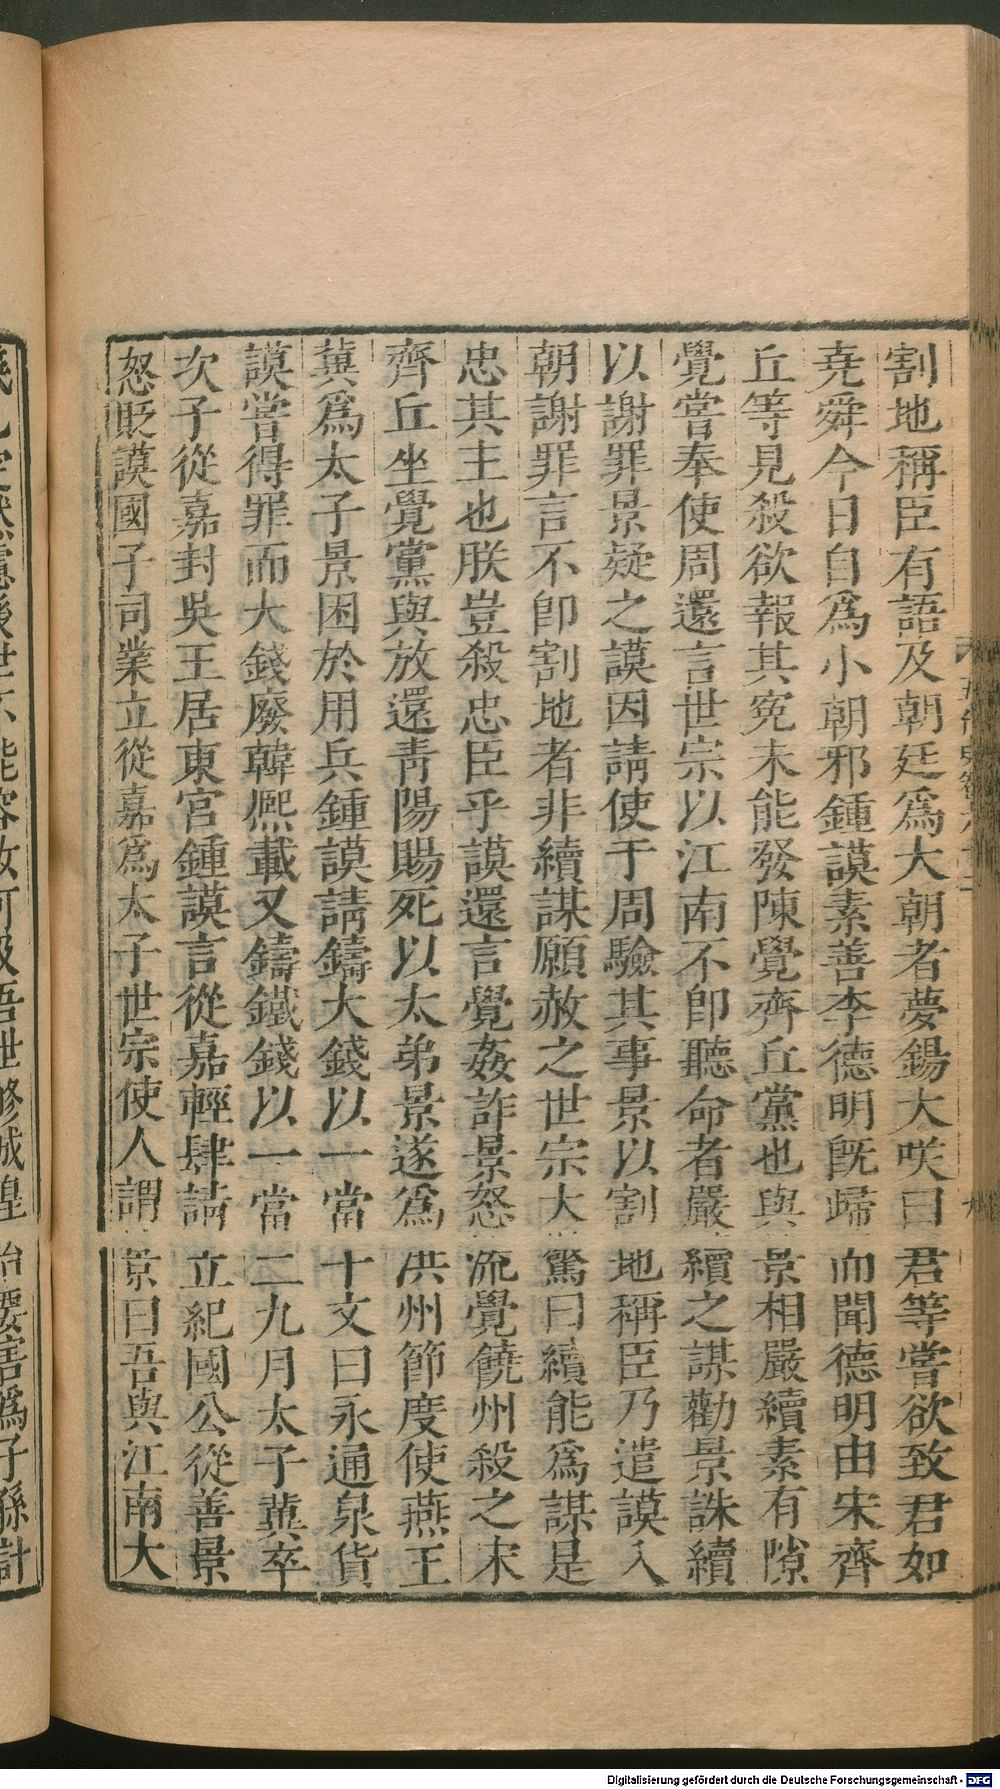 割地稱臣有語及朝廷爲大朝者夢錫大咲曰君等嘗欲致君如
尭舜今日自爲小朝邪鍾謨素善李德明旣歸而聞德明由宋齊
丘等見殺欲報其寃未能發陳覺齊丘黨也與景相嚴續素有隙
覺嘗奉使周還言世宗以江南不卽聽命者嚴續之謀勸景誅續
以謝罪景疑之謨因請使于周驗其事景以割地稱臣乃遣謨入
朝謝罪言不卽割地者非續謀願赦之世宗大驚曰續能爲謀是
忠其主也朕豈殺忠臣乎謨還言覺姦詐景怒流覺饒州殺之宋
齊丘坐覺黨與放還靑陽賜死以太弟景遂爲洪州節度使燕王
冀爲太子景困於用兵鍾謨請鑄大錢以一當十文曰永通泉貨
謨嘗得罪而大錢廢韓熈載又鑄鐵錢以一當二九月太子冀卒
次子從嘉封吳王居東宮鍾謨言從嘉輕肆請立紀國公從善景
怒貶謨國子司業立從嘉爲太子世宗使人謂景曰吾與江南大
世不能容
吾世修城隍治要害爲子孫計
Digitalisierung gefördert durch die Deutsche Forschungsgemeinschaft - DFG